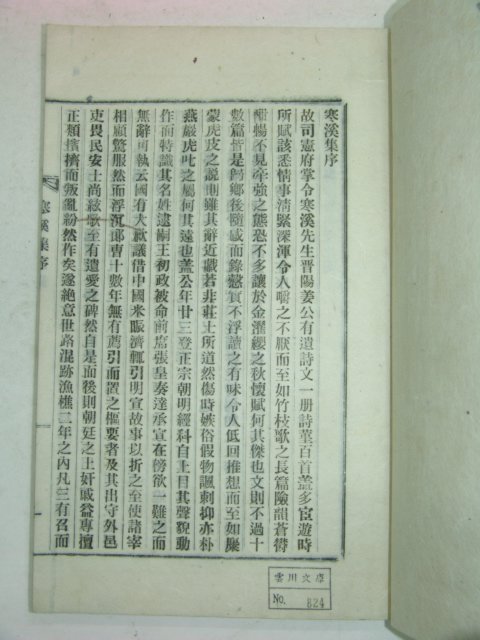 寒溪集序
故司憲府掌令寒溪先生晋陽姜公有遺詩文一册詩菫百首盖多宦遊時
所賦該悉情事淸緊深渾令人嚼之不厭而至如竹枝歌之長篇險韻蒼鬱
酣暢不見牽强之態恐不多讓於金濯纓之秋懷賦何其傑也文則不過十
數篇皆是歸鄕後隨感而錄慤實不浮讀之有味令人低回推想而至如麋
蒙虎皮之說則雖其辭近戱若非莊士所道然傷時嫉俗假物諷刺抑亦朴
燕巖虎叱之屬何其遠也盖公年廿三登正宗朝明經科自上目其聲貌動
作而特識其名姓逮嗣王初政被命前席張皇奏達承宣在傍欲一難之而
無辭可執云國有大歉議借中國米賑濟輒引明宣故事以折之至使諸宰
相顧驚服然而浮沉郎曹十數年無有薦引而置之樞要者及其出守外邑
吏畏民安士尙絃歌至有遺愛之碑然自是而後則朝廷之上奸戚益專擅
正類擯擠而叛亂紛然作矣遂絶意世路混跡漁樵二年之內凡三有召而
寒溪集序
雲川文庫
No. 824